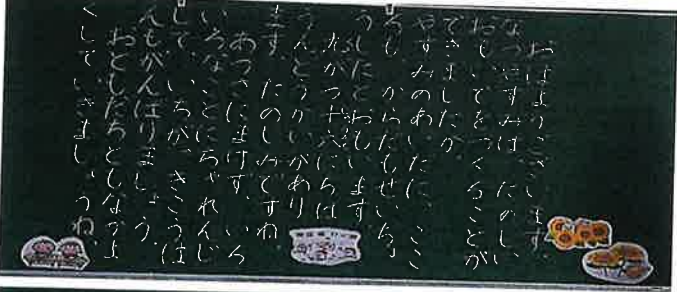 おはようございます。
なつやすみは、たのしい
おもいでをつくることが
できましたか。
やすみのあいだに、ここ
ろも、からだもせいちょ
うしたとおもいます。
九がつ十六にちは
うんどうかいがあり
ます。たのしみですね。
あつさにまけず、いろ
いろなことにちゃれんじ
して、いちがっきこうは
んもがんばりましょう。
おともだちともなかよ
くしていきましょうね。